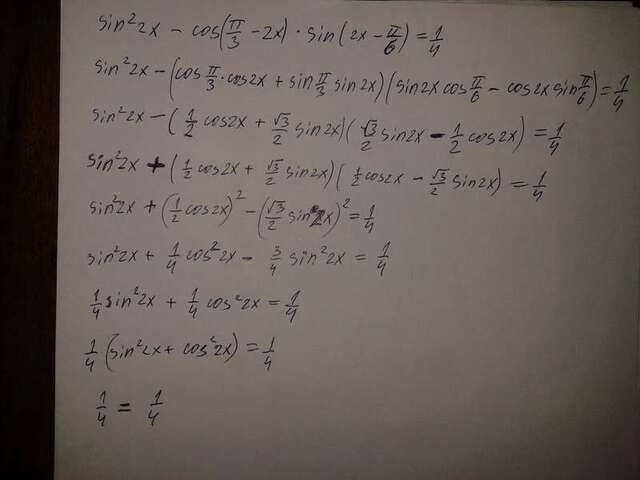 sin²2x - cos(π/3 - 2x) · sin(2x - π/6) = 1/4
sin²2x - (cos π/3 · cos2x + sin π/3 sin2x)(sin2x cos π/6 - cos2x sin π/6) = 1/4
sin²2x - (1/2 cos2x + √3/2 sin2x)(√3/2 sin2x - 1/2 cos2x) = 1/4
sin²2x + (1/2 cos2x + √3/2 sin2x)(1/2 cos2x - √3/2 sin2x) = 1/4
sin²2x + (1/2 cos2x)² - (√3/2 sin2x)² = 1/4
sin²2x + 1/4 cos²2x - 3/4 sin²2x = 1/4
1/4 sin²2x + 1/4 cos²2x = 1/4
1/4 (sin²2x + cos²2x) = 1/4
1/4 = 1/4